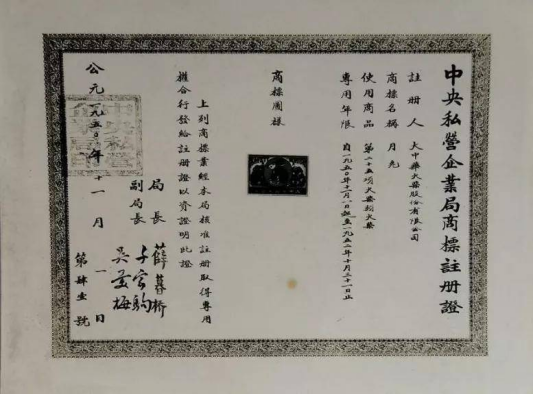 中央私營企業局商標註冊證
註冊人 大中華火柴股份有限公司
商標名稱 月兔
使用商品 第二十五項火柴類火柴
專用年限 自一九五〇年十一月一日起至一九五二年十月三十一日止
商標圖樣
上列商標業經本局核准註冊取得專用
權合行發給註冊證以資證明此證
局長 薛暮橋
副局長 千家駒
吳羹梅
公元一九五〇年十一月一日
第肆壹號